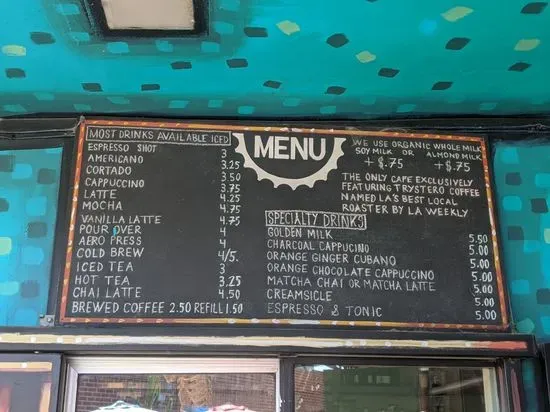 MOST DRINKS AVAILABLE ICED
ESPRESSO SHOT 3
AMERICANO 3.25
CORTADO 3.50
CAPPUCCINO 3.75
LATTE 4.25
MOCHA 4.75
VANILLA LATTE 4.75
POUR OVER 4
AERO PRESS 4
COLD BREW 4/5.
ICED TEA 3
HOT TEA 3.25
CHAI LATTE 4.50
BREWED COFFEE 2.50 REFILL 1.50
MENU
WE USE ORGANIC WHOLE MILK
SOY MILK OR ALMOND MILK
+$.75 +$.75
THE ONLY CAFE EXCLUSIVELY
FEATURING TRYSTERO COFFEE
NAMED LA'S BEST LOCAL
ROASTER BY LA WEEKLY
SPECIALTY DRINKS
GOLDEN MILK 5.50
CHARCOAL CAPPUCCINO 5.00
ORANGE GINGER CUBANO 5.00
ORANGE CHOCOLATE CAPPUCCINO 5.00
MATCHA CHAI OR MATCHA LATTE 5.00
CREAMSICLE 5.00
ESPRESSO & TONIC 5.00